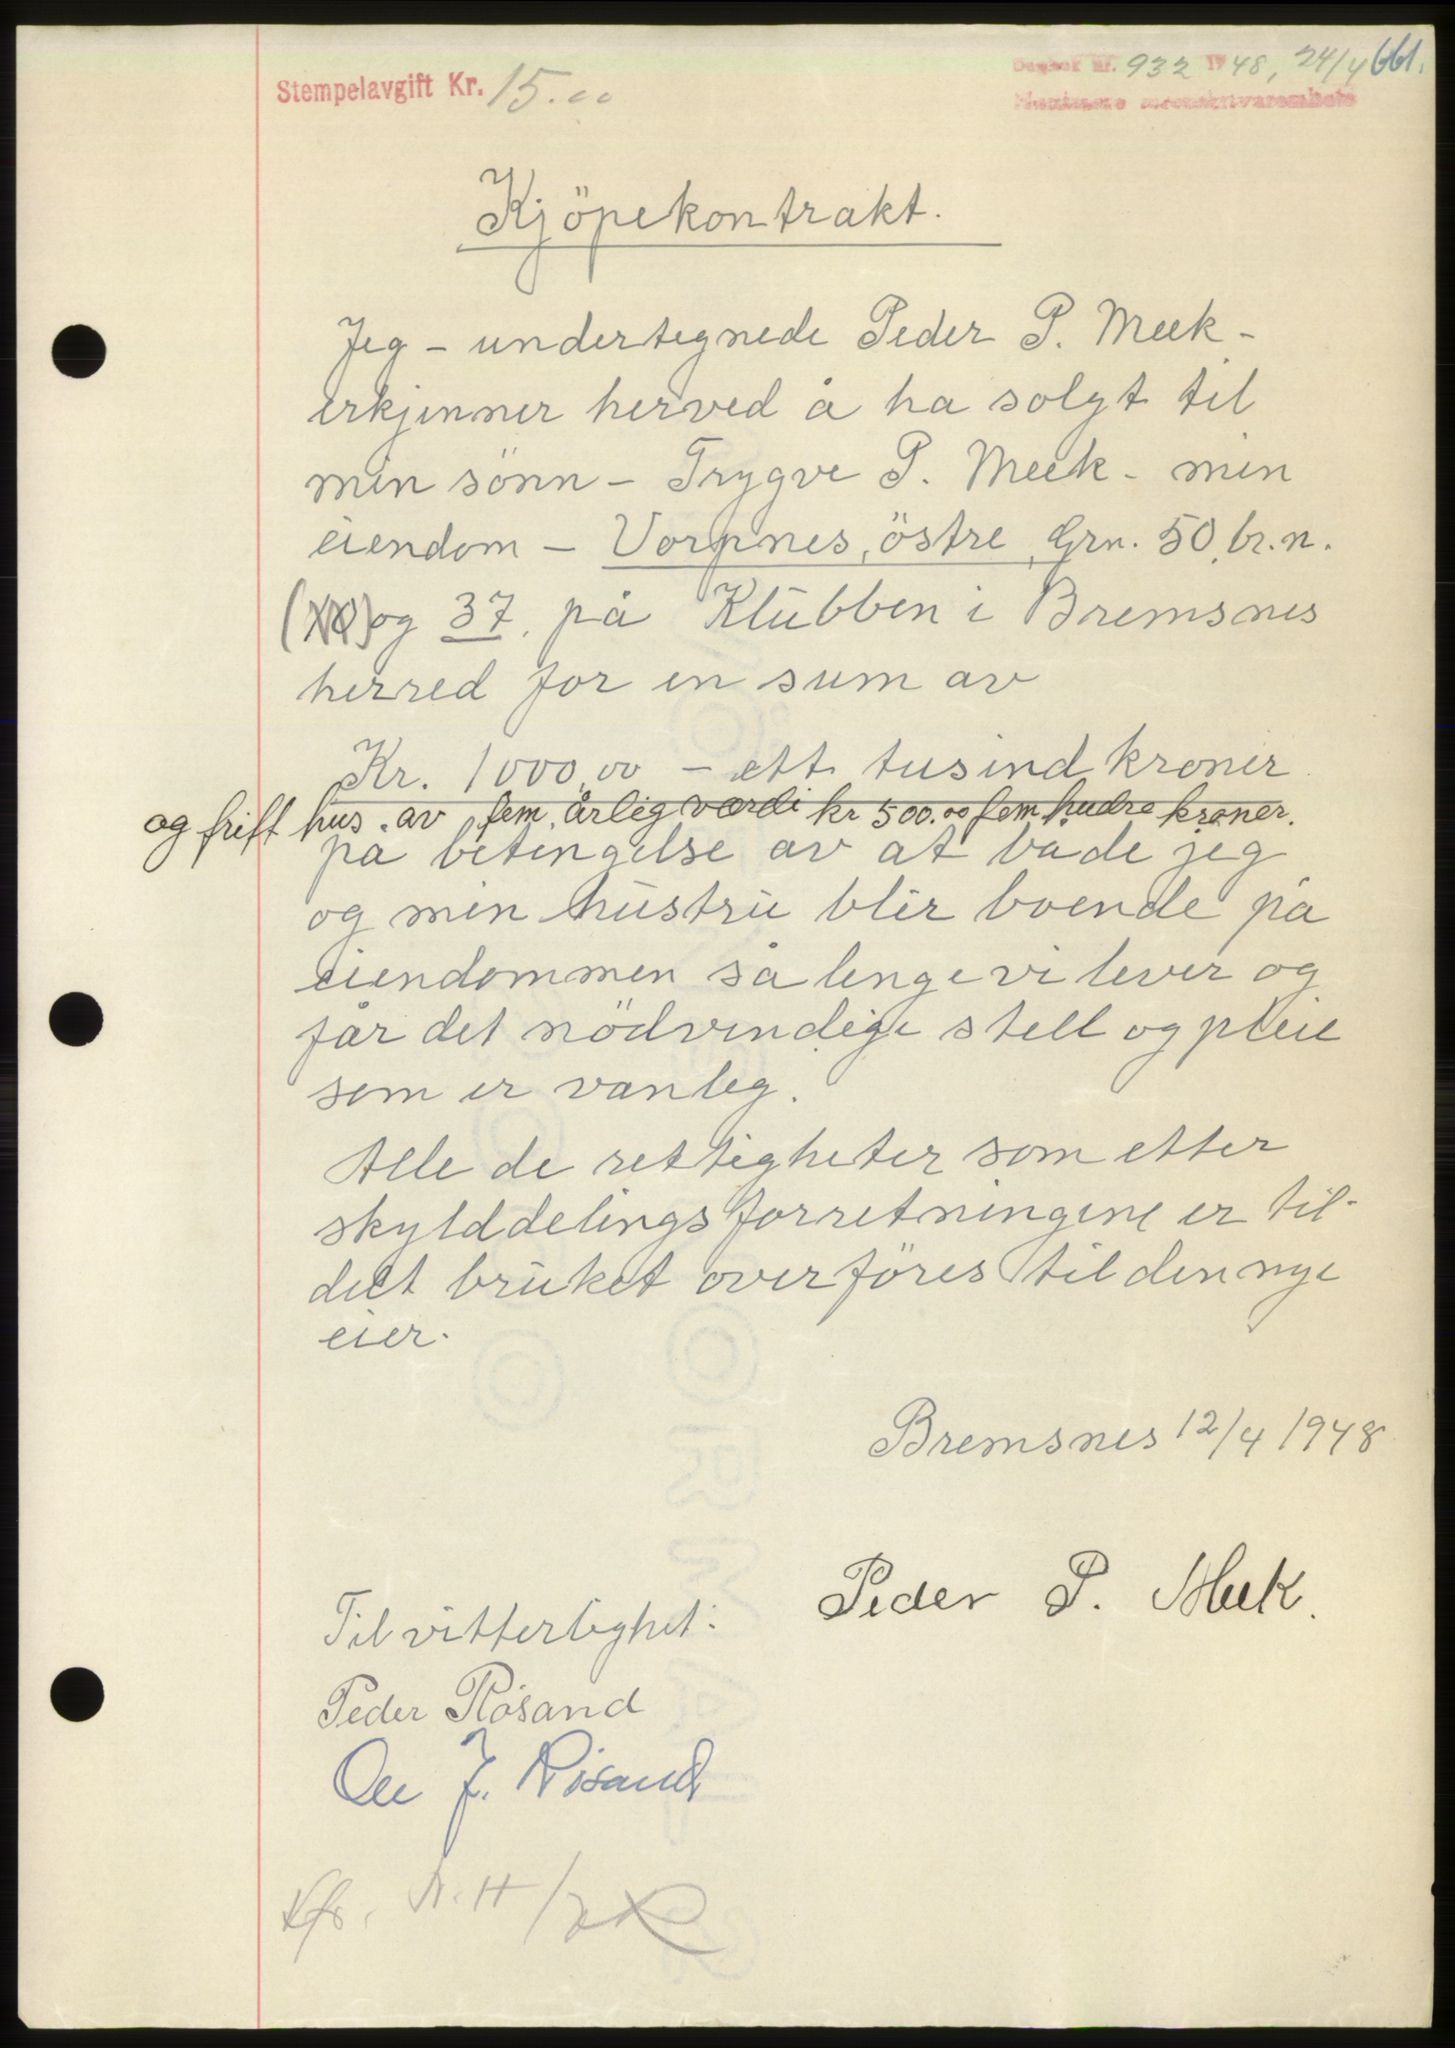 Stempelavgift Kr. 15.00
Dagbok nr. 932 1948, 24/4 661.
Nordmøre sorenskriverembete
Kjöpekontrakt.
Jeg - undertegnede Peder P. Meek -
erkjenner herved å ha solgt til
min sönn - Trygve P. Meek - min
eiendom - Vorpnes, östre, Grn. 50, br.n.
og 37, på Klubben i Bremsnes
herred for en sum av
Kr. 1000,00 - ett tusind kroner
og fritt hus av fem årlig værdi kr 500.00 fem hudre kroner.
på betingelse av at både jeg
og min hustru blir boende på
eiendommen så lenge vi lever og
får det nödvendige stell og pleie
som er vanlig.
Alle de rettigheter som etter
skylddelingsforretningene er til-
delt bruket overföres til den nye
eier.
Bremsnes 12/4 1948
Peder P. Meek.
Til vitterlighet:
Peder Røsand
Ole J. Røsand